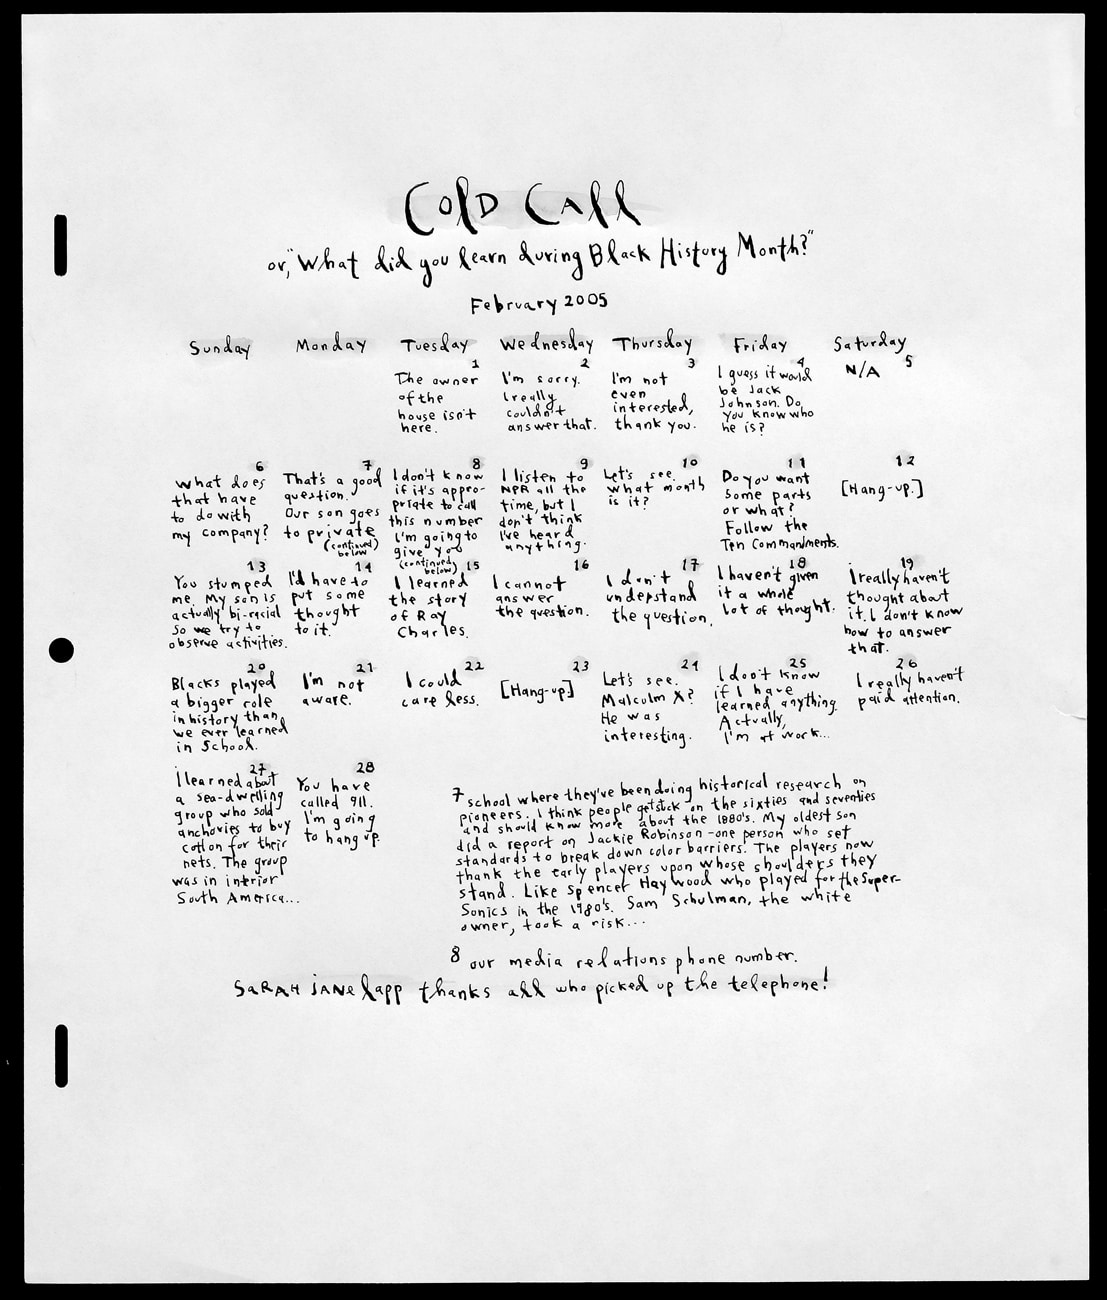 Cold Call
or, "What did you learn during Black History Month?"
February 2005
Sunday Monday Tuesday Wednesday Thursday Friday Saturday
1
The owner
of the
house isn't
here.
2
I'm sorry.
I really
couldn't
answer that.
3
I'm not
even
interested,
thank you.
4
I guess it would
be Jack
Johnson. Do
you know who
he is?
5
N/A
6
What does
that have
to do with
my company?
7
That's a good
question.
Our son goes
to private
(continued
below)
8
I don't know
if it's appro-
priate to call
this number
I'm going to
give you
(continued
below)
9
I listen to
NPR all the
time, but I
don't think
I've heard
anything.
10
Let's see.
What month
is it?
11
Do you want
some parts
or what?
Follow the
Ten Commandments.
12
[Hang-up.]
13
You stumped
me. My son is
actually bi-racial
so we try to
observe activities.
14
I'd have to
put some
thought
to it.
15
I learned
the story
of Ray
Charles.
16
I cannot
answer
the question.
17
I don't
understand
the question.
18
I haven't given
it a whole
lot of thought.
19
I really haven't
thought about
it. I don't know
how to answer
that.
20
Blacks played
a bigger role
in history than
we ever learned
in School.
21
I'm not
aware.
22
I could
care less.
23
[Hang-up]
24
Let's see.
Malcolm X?
He was
interesting.
25
I don't know
if I have
learned anything.
Actually,
I'm at work...
26
I really haven't
paid attention.
27
I learned about
a sea-dwelling
group who sold
anchovies to buy
cotton for their
nets. The group
was in interior
South America...
28
You have
called 911.
I'm going
to hang up.
7 school where they've been doing historical research on
pioneers. I think people get stuck on the sixties and seventies
and should know more about the 1880's. My oldest son
did a report on Jackie Robinson - one person who set
standards to break down color barriers. The players now
thank the early players upon whose shoulders they
stand. Like Spencer Haywood who played for the Super-
Sonics in the 1980's. Sam Schulman, the white
owner, took a risk...
8 our media relations phone number.
SARAH JANE lapp thanks all who picked up the telephone!